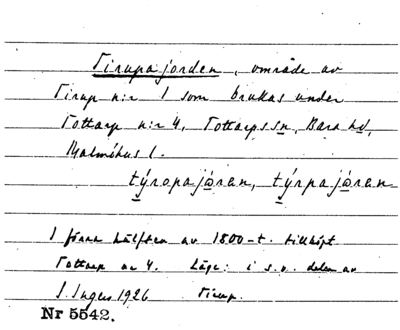 Tirupajorden, område av
Tirup n:r 1 som brukas under
Tottarp n:r 4, Tottarps sn, Bara hd,
Malmöhus l.
týropajöran, týrpajöran
I förra hälften av 1800-t. tillköpt
Tottarp nr 4. Läge: i s.v. delen av
J. Ingers 1926 Tirup.
Nr 5542.